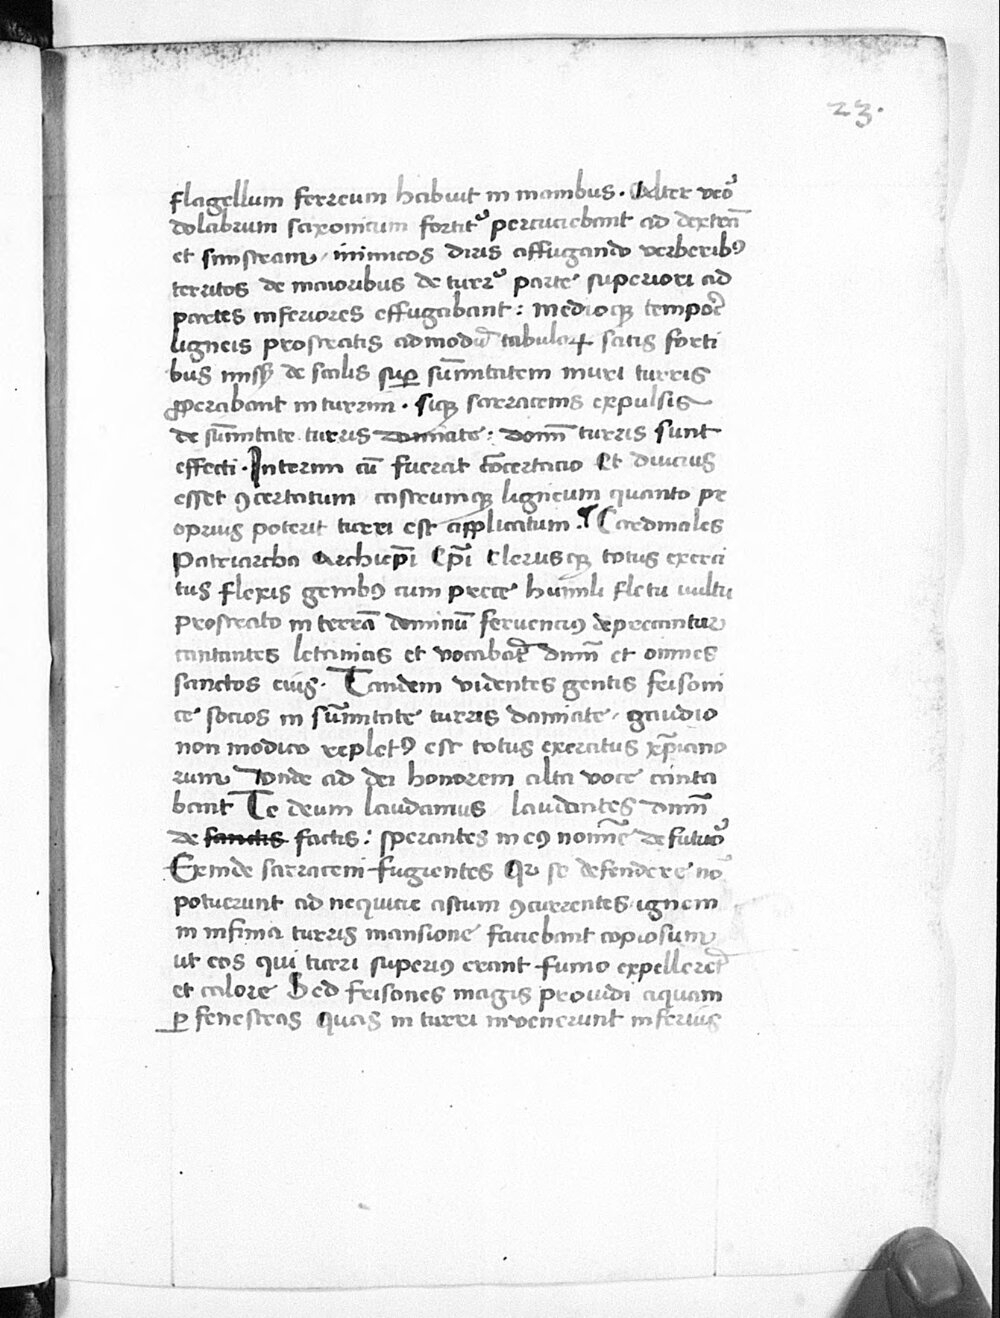 23.
flagellum ferreum habuit in manibus. Alter veo᷒
dolabrum saxonicum fortit᷒ percuciebant ad dextrā
et sinistram, inimicos diris affugando verberibꝰ
territos de maioribus de turr᷒ parte superiori ad
partes inferiores effugabant: medioqꝫ tempore
ligneis prostratis admodū tabulaꝝ satis forti
bus de scalis suꝑ sūmitatem muri turris
ꝓperabant in turrim. sicqꝫ sarracenis expulsis
de sūmitate turris damiate: domī turris sunt
effecti. Interim cū fuerat cōcertacio et diucius
esset ꝯcertatum castrumqꝫ ligneum quanto pr
oprius poterit turri est applicatum. ¶ Cardinales
patriarcha Archiep̄i Ep̄i Clerusqꝫ totus exerci
tus flexis genibꝰ cum prece humili fletu vultu
prostrato in terrā dominū feruenciꝰ deprecantur
cantantes letanias et dn̄m et omnes
sanctos eius. Tandem videntes gentis frisoni
ce socios in sūmitate turris damiate, gaudio
non modico repletꝰ est totus exercitus xp̄iano
rum, Vnde ad dei honorem alta voce canta
bant Te deum laudamus laudantes dn̄m
de sanctis factis: sperantes in eꝰ noīe de futuro᷒
Exinde sarraceni fugientes Qr se defendere nō
potuerunt ad nequicie astum ꝯcurrentes ignem
in infima turris mansione faciebant copiosum,
ut eos qui turri superiꝰ erant fumo expelleret
et calore Sed frisones magis prouidi aquam
ꝑ fenestras quas in turri invenerunt inferius